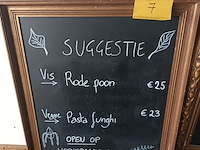 7
SUGGESTIE
Vis → Rode poon €25
Vegan → Pasta funghi €23
OPEN OP